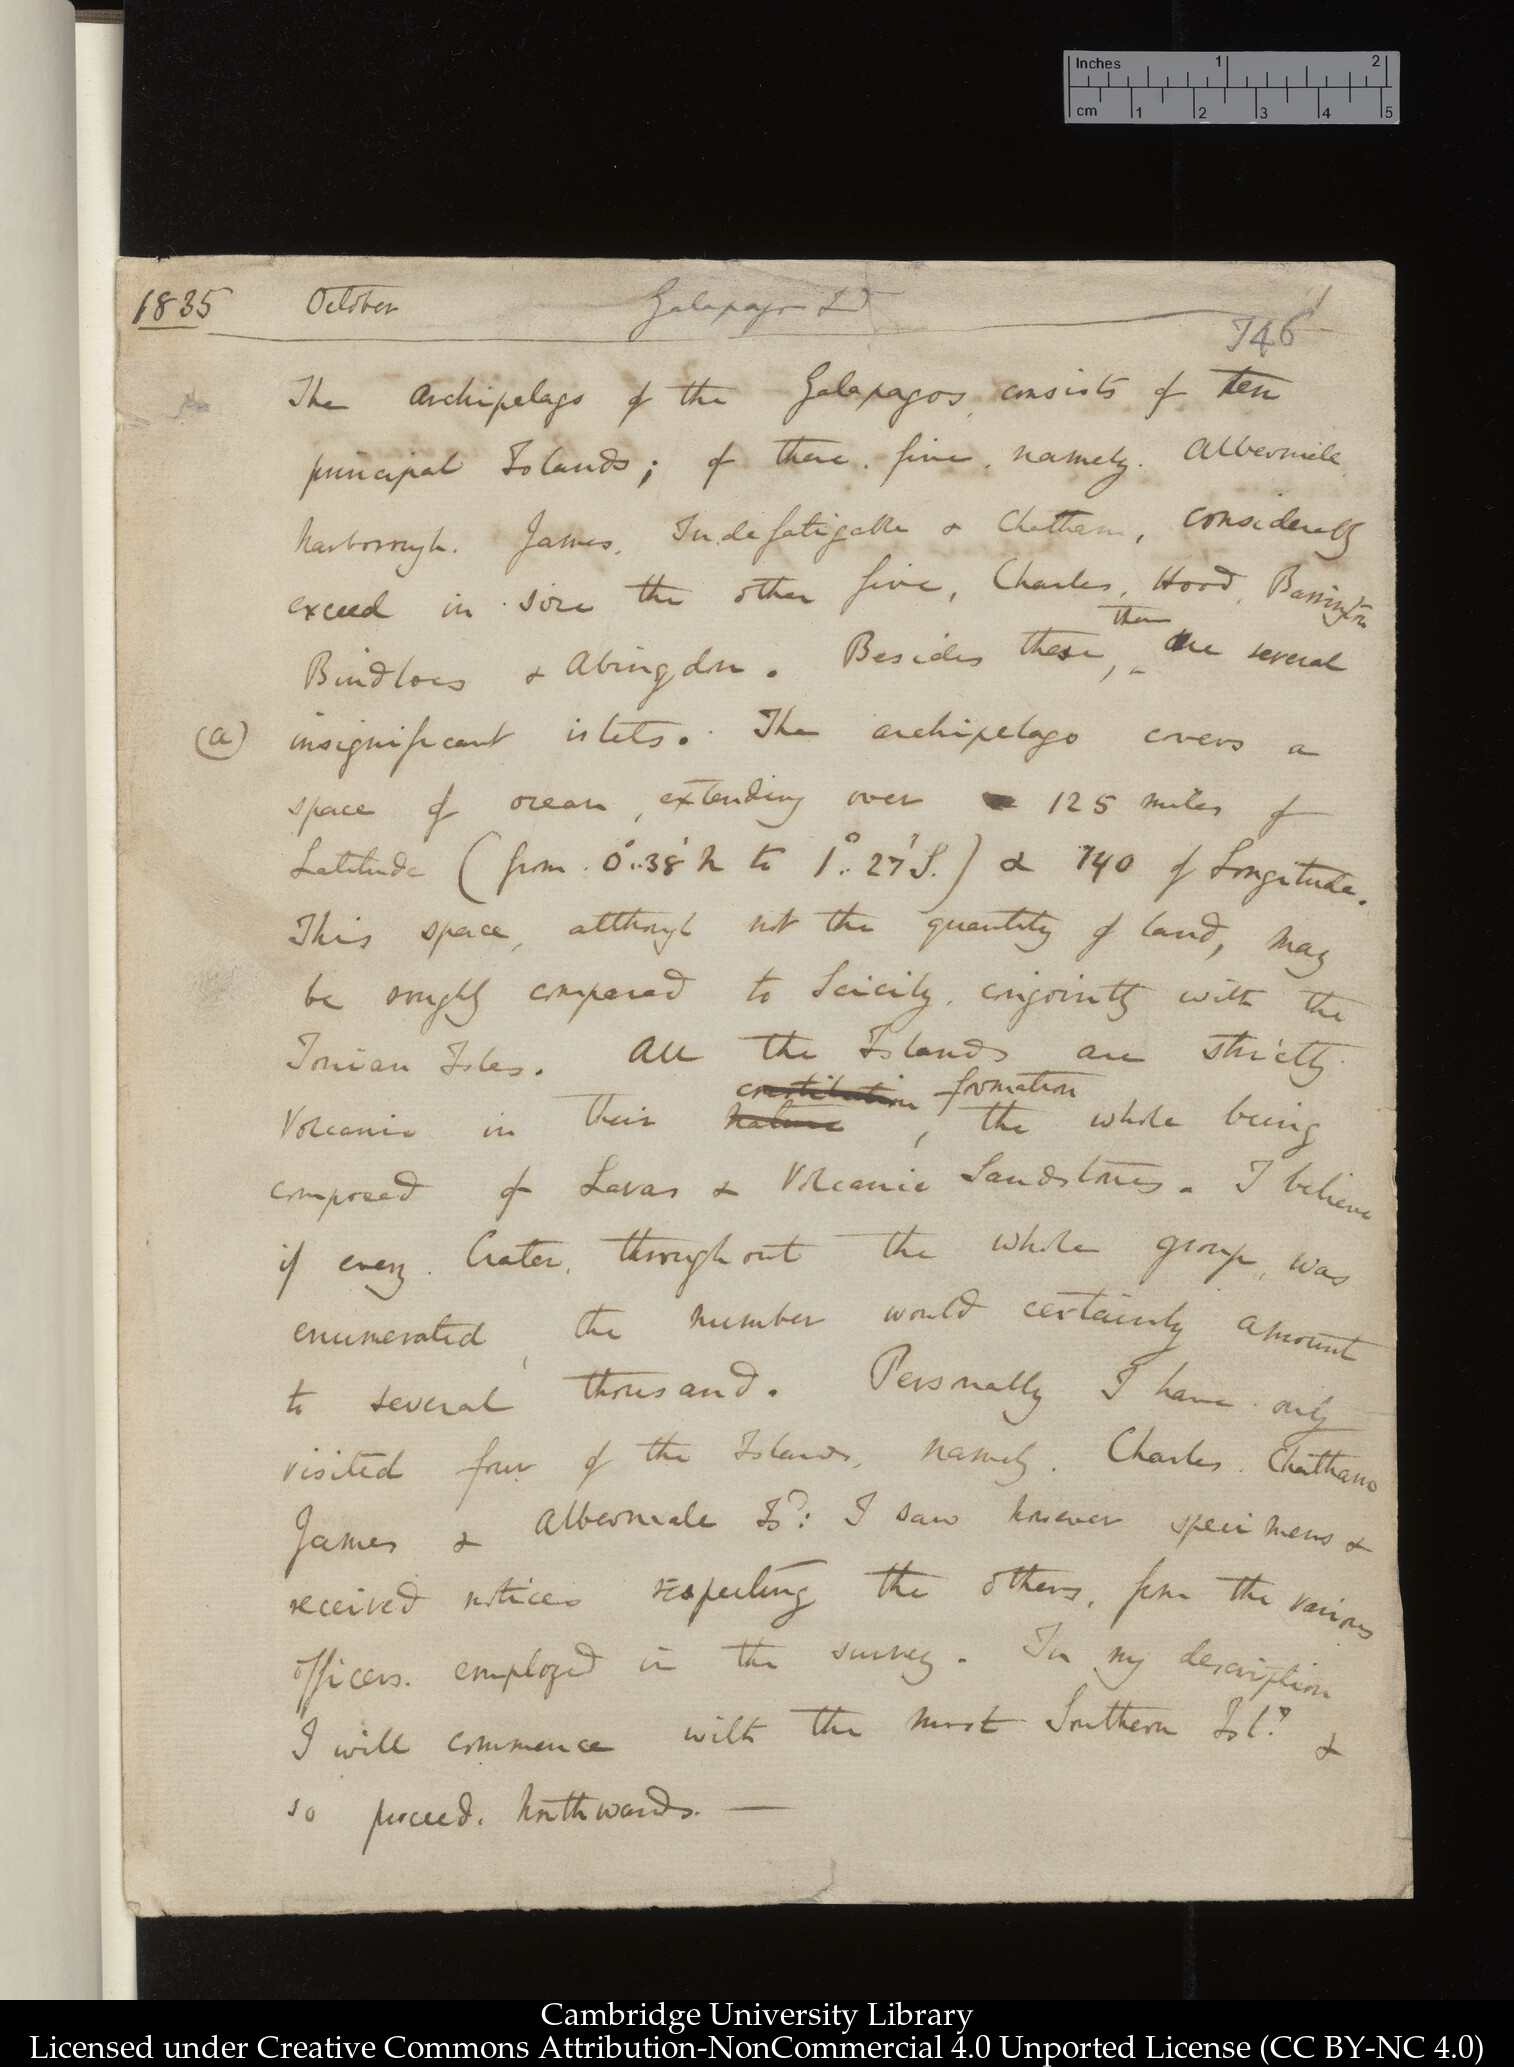 Inches 1 2
cm 1 2 3 4 5
1835 October Galapagos Id
1
746
The archipelago of the Galapagos consists of ten
principal Islands; of these, five, namely. Albermale
Narborough. James. Indefatigable & Chatham, considerably
exceed in size the other five, Charles, Hood, Barrington
there
Bindloes & Abingdon. Besides these, are several
(a) insignificant islets. The archipelago covers a
space of ocean, extending over 125 miles of
Latitude (from 0°..38' N to 1°.. 27' S.) & 140 of Longitude.
This space, although not the quantity of land, may
be roughly compared to Scicily, conjointly with the
Ionian Isles. All the Islands are strictly
constitution formation
Volcanic in their nature, the whole being
composed of Lavas & Volcanic Sandstones. I believe
if every Crater, throughout the whole group, was
enumerated, the number would certainly amount
to several thousand. Personally I have only
visited four of the Islands, namely. Charles. Chatham
James & Albermale Is: I saw however specimens &
received notices respecting the others, from the various
officers. employed in the survey. In my description
I will commence with the most Southern Isd &
so proceed. Northwards. —
Cambridge University Library
Licensed under Creative Commons Attribution-NonCommercial 4.0 Unported License (CC BY-NC 4.0)